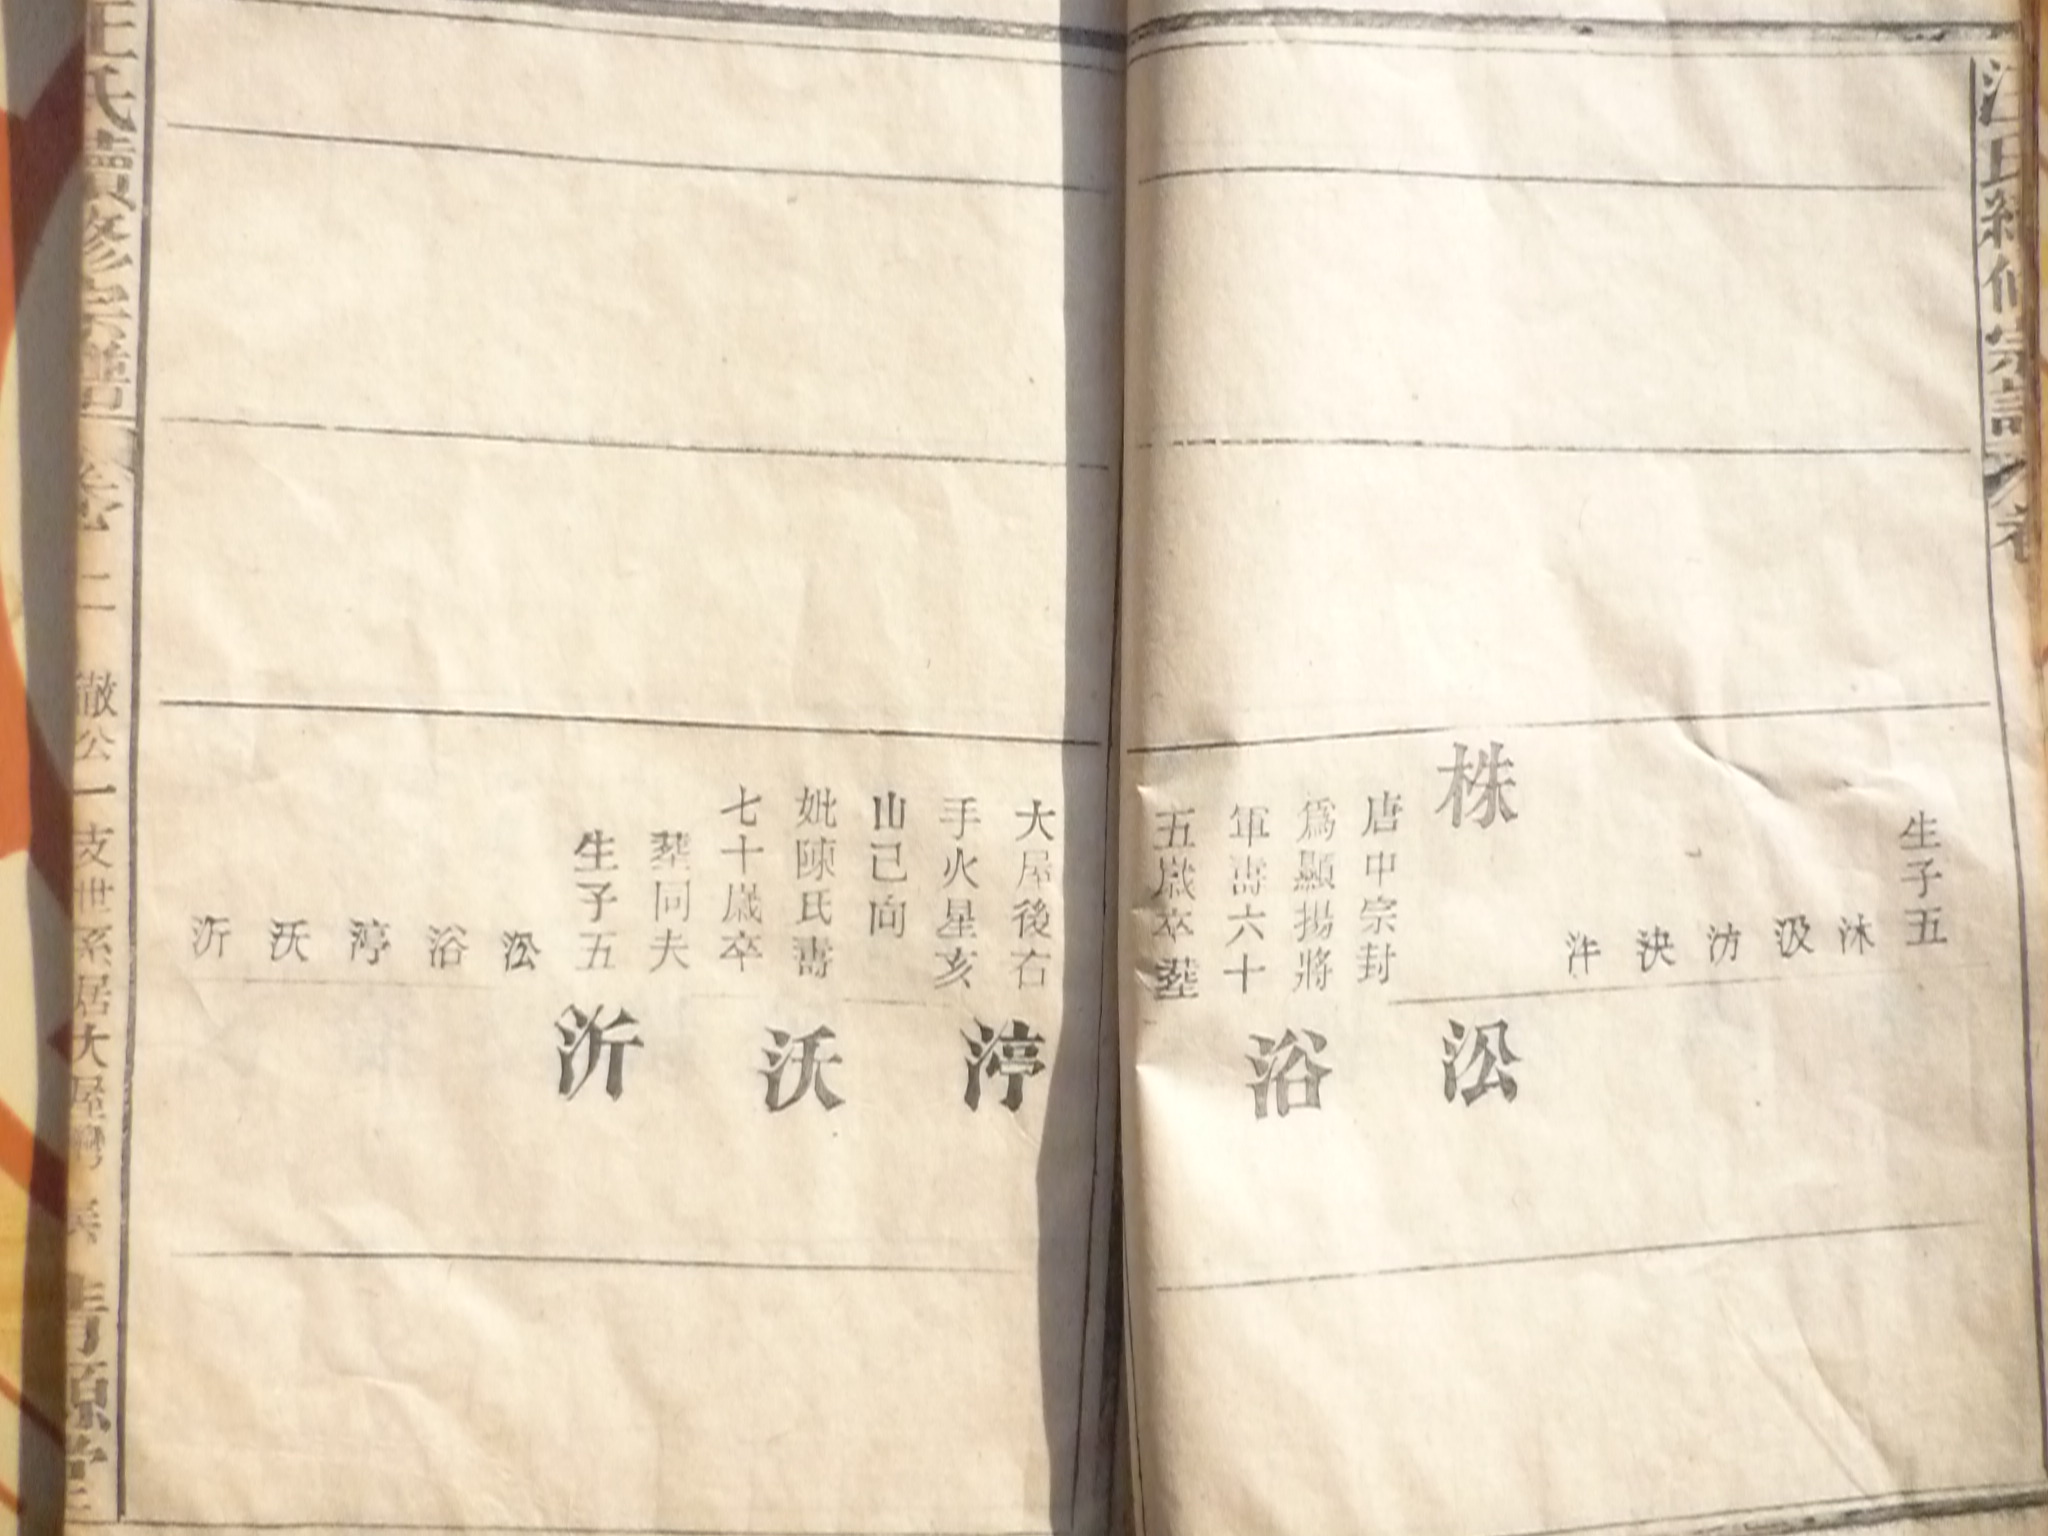 汪氏續修宗譜 卷
生子五
沐
汲
汸
泱
泮
株
唐中宗封
爲顯揚將
軍壽六十
五歲卒塟
大屋後右
手火星亥
山己向
妣陳氏壽
七十歲卒
塟同夫
生子五
淞
浴
渟
沃
沂
淞
浴
渟
沃
沂
汪氏續修宗譜 卷 二 徹公一支世系居大屋灣 清源堂